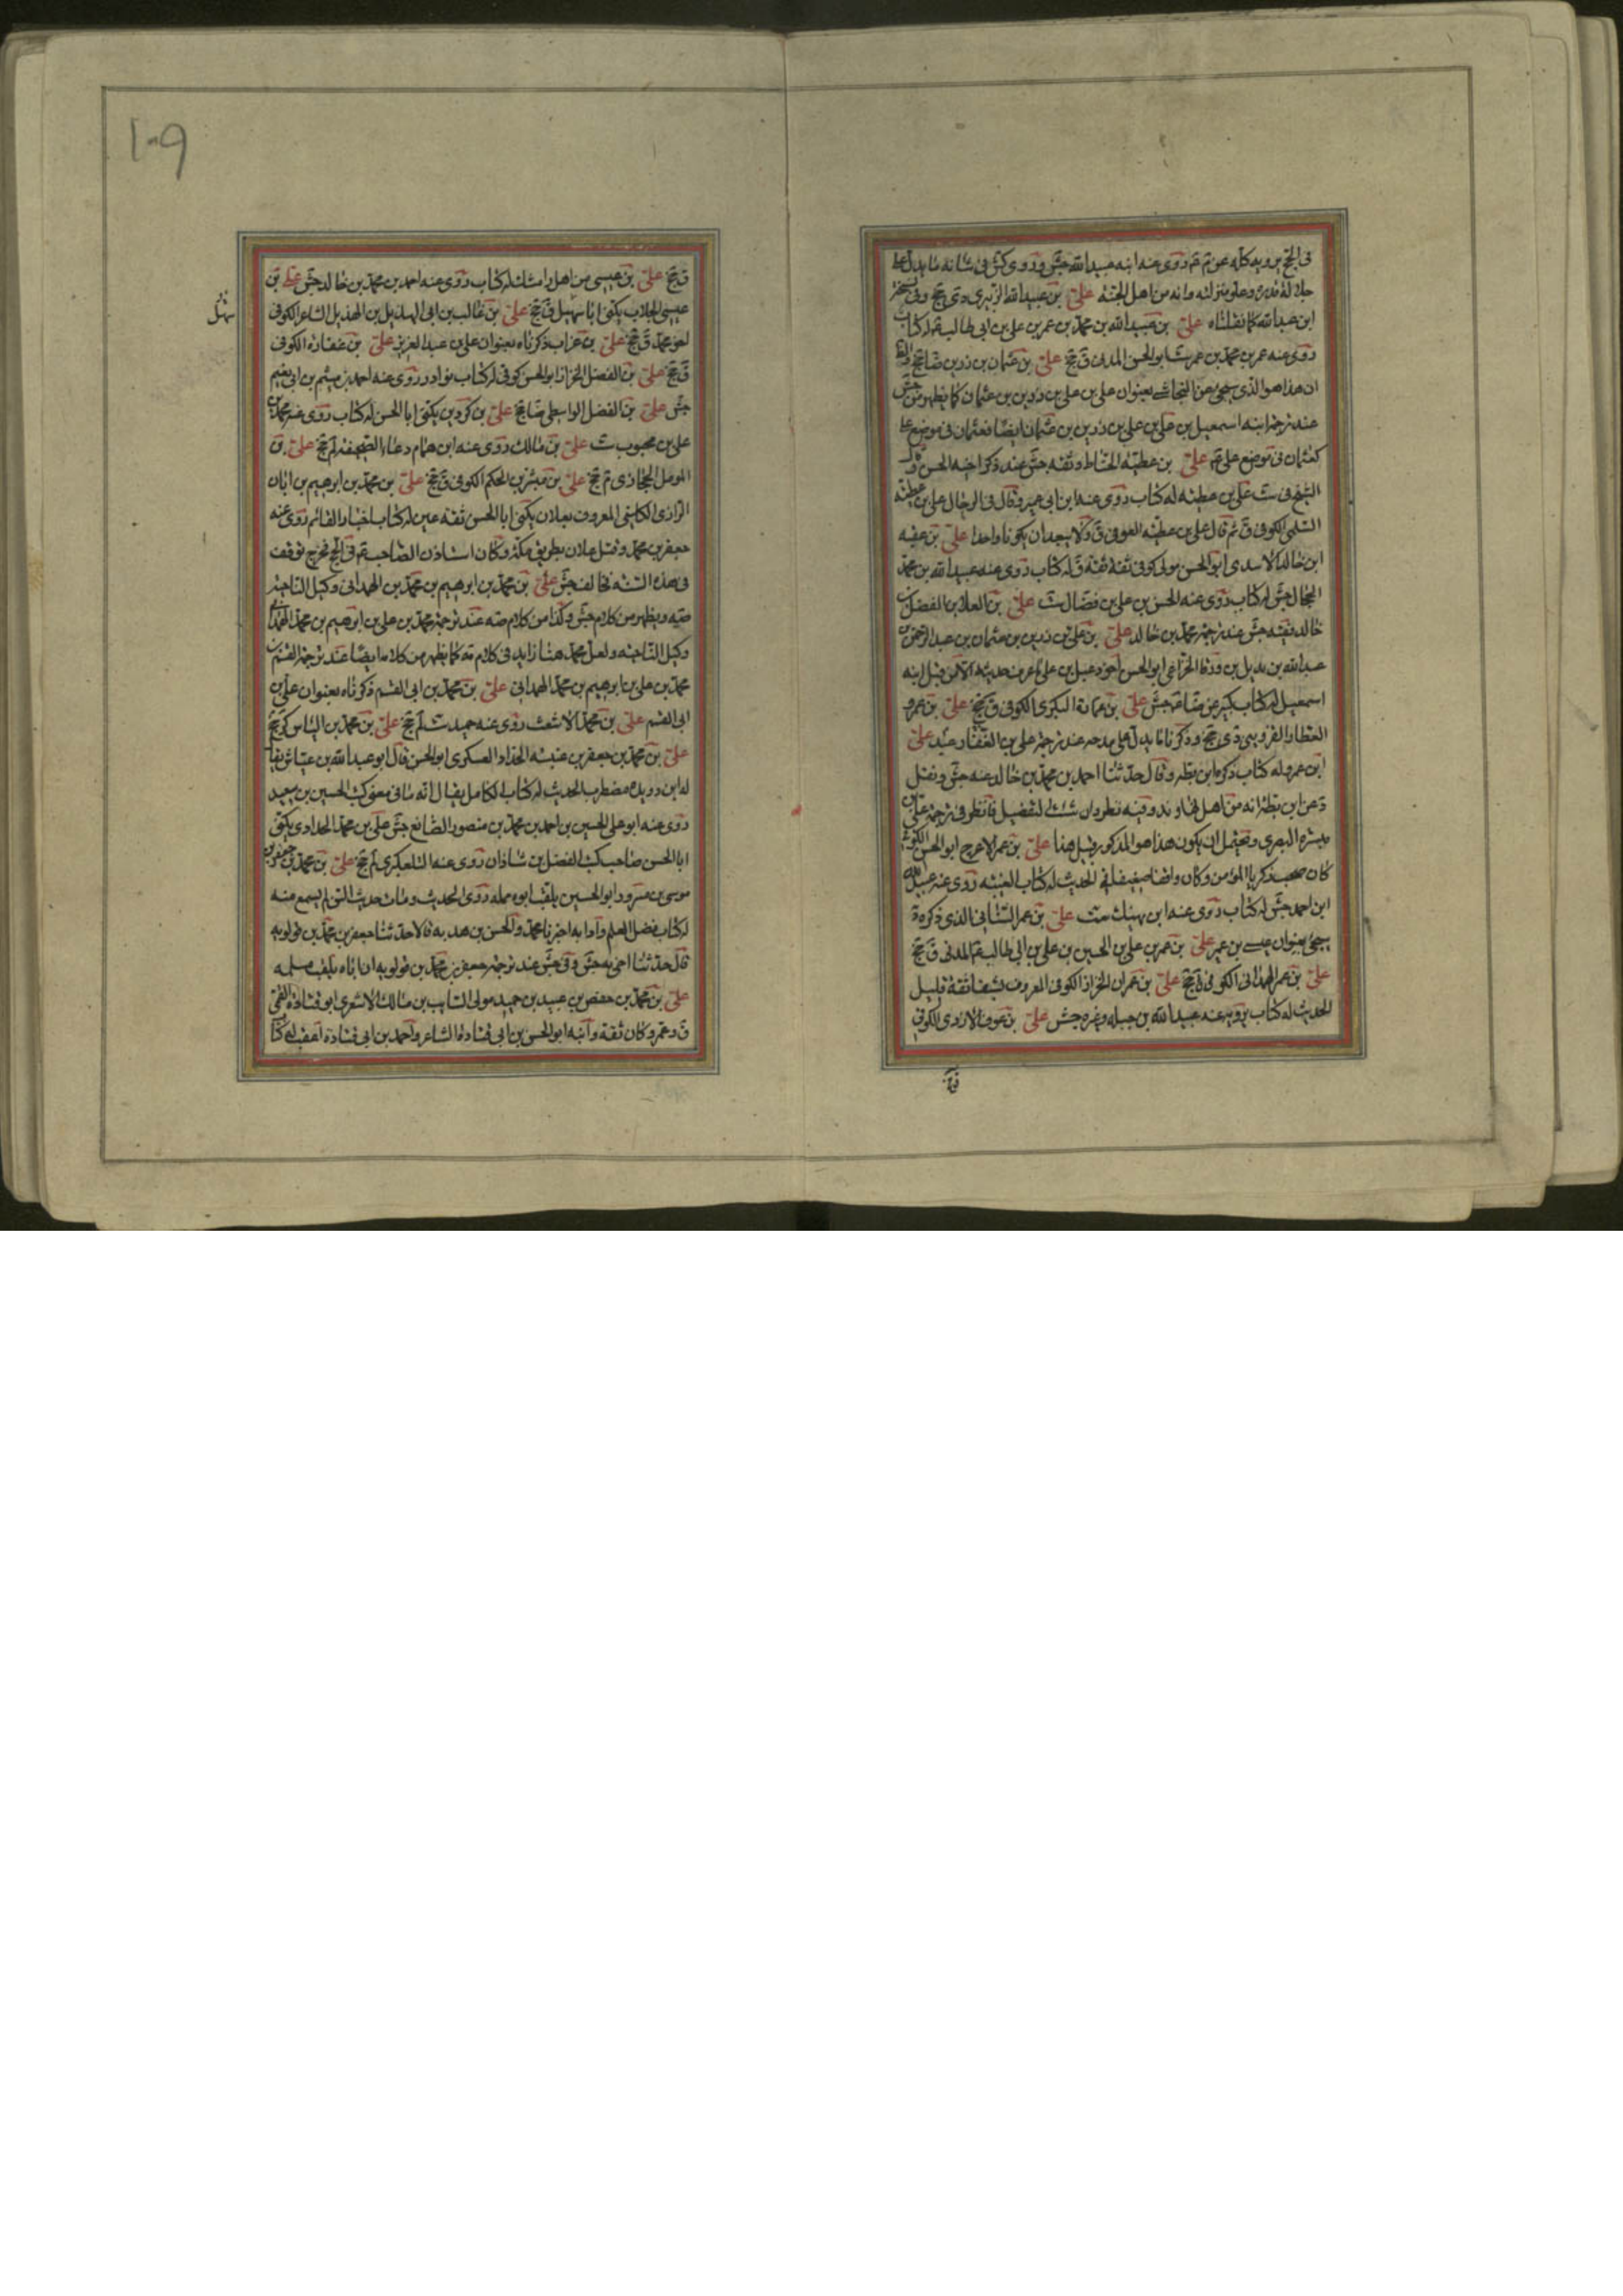 في الحج يرويه كله عن م ثم روى عنه ابنه عبيدالله جش وروى كش في شانه ما يدل على
جلالة قدره وعلو منزلته وانه من اهل الجنة علي بن عبيدالله الزبيرى دى جخ وفى نسخة
ابن عبدالله كما نقلناه علي بن عبيدالله بن محمد بن عمر بن علي بن ابى طالب له كتاب
روى عنه عمر بن محمد بن عمر ست ابو الحسن المدنى ق جخ علي بن عثمان بن رزين ضا جخ والظ
ان هذا هو الذى سيجئ عن النجاشى بعنوان على بن على بن رزين بن عثمان كما يظهر من جش
عند ترجمة ابنه اسمعيل بن على بن على بن رزين بن عثمان ايضا فعثمان فى موضع على
كعثمان فى موضع على علي بن عطية الحناط وثقه جش عند ذكر اخيه الحسن وقال
الشيخ فى ست على بن عطية له كتاب روى عنه ابن ابى عمير وقال فى الرجال على بن عطية
السلمى الكوفى ق ثم قال على بن عطية العوفى ق ولا يبعد ان يكونا واحدا علي بن عقبة
ابن خالد الاسدى ابو الحسن مولى كوفى ثقة ثقة ق له كتاب روى عنه عبيدالله بن محمد
الحجال جش له كتاب روى عنه الحسن بن على بن فضال ست علي بن العلا بن الفضل بن
خالد فقيه جش عند ترجمة محمد بن خالد علي بن على بن رزين بن عثمان بن عبدالرحمن بن
عبدالله بن بديل بن ورقا الخزاعى ابو الحسن اخو دعبل بن على ما عرف حديثه الا من قبل ابنه
اسمعيل له كتاب كبير عن ضا جش علي بن عمارة البكرى الكوفى ق جخ علي بن عمرو
العطار القزوينى دى جخ وذكرنا ما يدل على مدحه عند ترجمة على بن عبدالغفار علي
ابن عمر وله كتاب ذكره ابن بطة وقال حدثنا احمد بن محمد بن خالد عنه جش ونقل
د عن ابن بطة انه من اهل نهاوند وفيه نظر وان شئت التفصيل فانظر فى ترجمة على بن
ميسرة البصرى ويحتمل ان يكون هذا هو المذكور قبل هنا علي بن عمر الاعرج ابو الحسن الكوفى
كان صحب زكريا المؤمن وكان واقفا ضعيفا فى الحديث له كتاب الغيبة روى عنه عبيدالله
ابن احمد جش له كتاب روى عنه ابن نهيك ست علي بن عمر الشامى الذى ذكره
يجئ بعنوان عيسى بن عمر علي بن عمر بن على بن الحسين بن على بن ابى طالب المدنى ق جخ
علي بن عمر الهمدانى الكوفى ق جخ علي بن عمران الخزاز الكوفى المعروف بشفا ثقة قليل
الحديث له كتاب يرويه عنه عبيدالله بن جبلة وغيره جش علي بن عوف الازدى الكوفى
ق جخ
ق جخ علي بن عيسى من اهل رامشك له كتاب روى عنه احمد بن محمد بن خالد جش على بن
عيسى الجلاب يكنى ابا سهيل ق جخ علي بن غالب بن ابى الهذيل بن الهذيل الشاعر الكوفى
سهل
اخو محمد ق جخ علي بن غراب ذكرناه بعنوان على بن عبدالعزيز علي بن غفارة الكوفى
ق جخ علي بن الفضل الخزاز ابو الحسن كوفى له كتاب نوادر روى عنه احمد بن ميثم بن ابى نعيم
جش علي بن الفضل الواسطى ضا جخ علي بن كردين يكنى ابا الحسن له كتاب روى عنه محمد بن
على بن محبوب ست علي بن مالك روى عنه ابن همام دعاء الصحيفة لم جخ علي بن
المومل الحجازى م جخ علي بن مبشر بن الحكم الكوفى ق جخ علي بن محمد بن ابرهيم بن ابان
الرازى الكلينى المعروف بعلان يكنى ابا الحسن ثقة عين له كتاب اخبار القائم روى عنه
جعفر بن محمد وقتل علان بطريق مكة وكان استاذن الصاحب فى الحج فخرج توقف
فى هذه السنة فخالف جش علي بن محمد بن ابرهيم بن محمد بن الهمدانى وكيل الناحية
صه ويظهر من كلام جش وكذا من كلام صه عند ترجمة محمد بن على بن ابرهيم بن محمد الهمدانى
وكيل الناحية ولعل محمد هنا زايد فى كلام صه كما يظهر من كلامه ايضا عند ترجمة القسم بن
محمد بن على بن ابرهيم بن محمد الهمدانى علي بن محمد بن ابى القسم ذكرناه بعنوان على بن
ابى القسم علي بن محمد الاشعث روى عنه حميد ست لم جخ علي بن محمد بن الياس كر جخ
علي بن محمد بن جعفر بن عنبسة الحداد العسكرى ابو الحسن قال ابو عبدالله بن عياش يقال
له ابن رويدة مضطرب الحديث له كتاب الكامل يقال انه ما فى معنى كتب الحسين بن سعيد
روى عنه ابو على الحسين بن احمد بن محمد بن منصور الصائغ جش على بن محمد الحدادى يكنى
ابا الحسن صاحب كتب الفضل بن شاذان روى عنه التلعكبرى لم جخ علي بن محمد بن جعفر بن
موسى بن مسرور ابو الحسين يلقب ابوه مملة روى الحديث ومات حديث السن لم يسمع منه
له كتاب فضل العلم وادابه اخبرنا محمد والحسن بن هدبه قالا حدثنا جعفر بن محمد بن قولويه
قال حدثنا اخى به جش وفى جش عند ترجمة جعفر بن محمد بن قولويه ان اباه يلقب مسلمه
علي بن محمد بن حفص بن عبيد بن حميد مولى السايب بن مالك الاشعرى ابو قتادة القمى
ق وعمر وكان ثقة وابنه ابو الحسن بن ابى قتادة الشاعر واحمد بن ابى قتادة اعقب له كتا
١٠٩